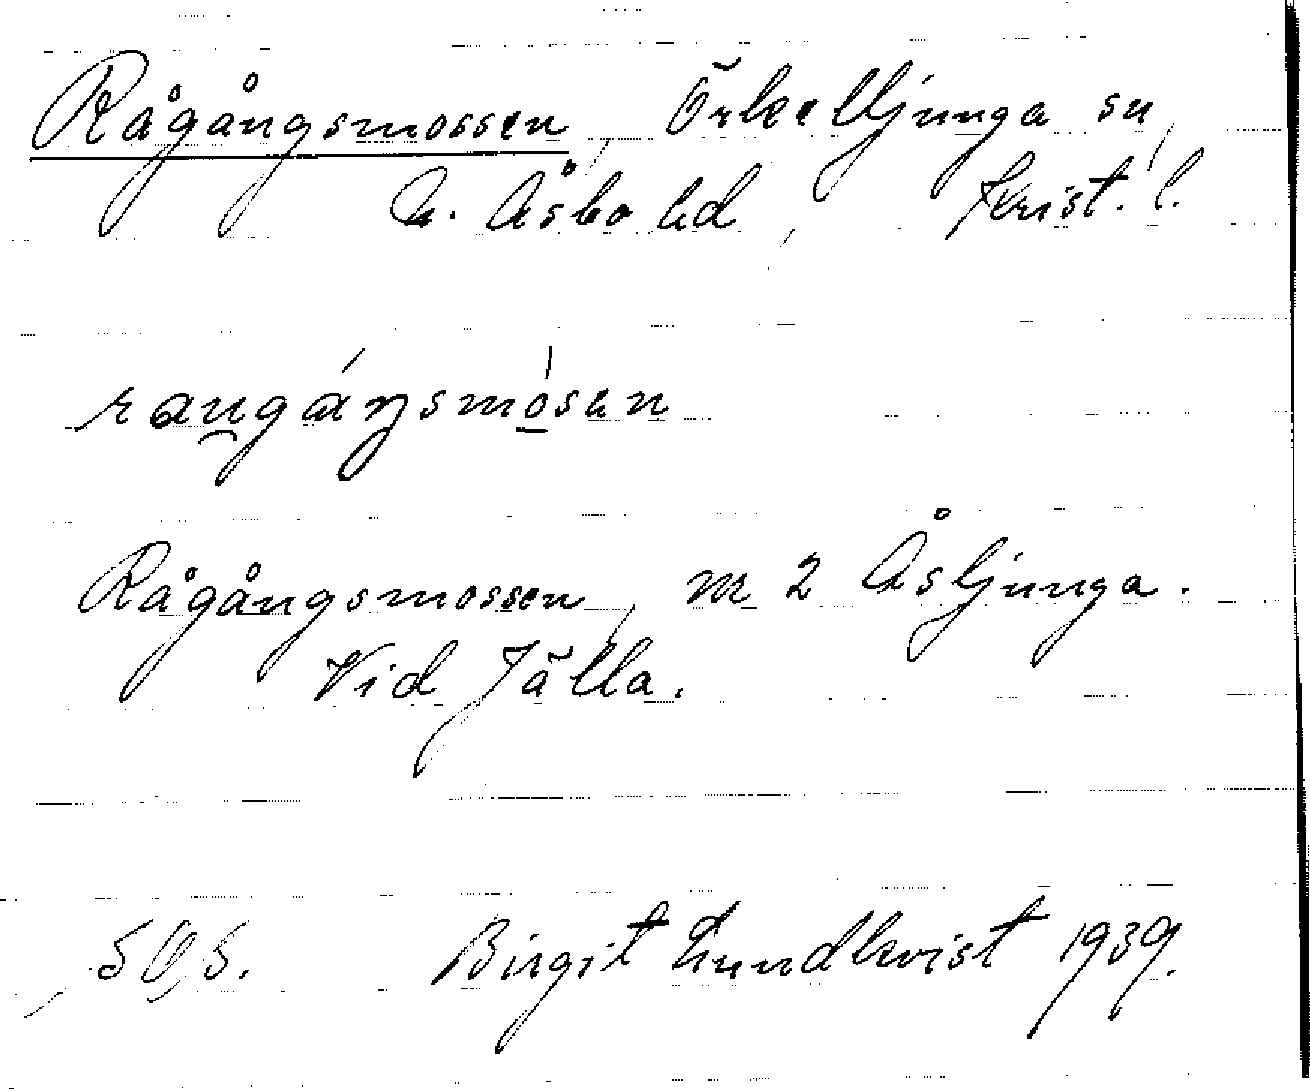 Rågångsmossen, Örkelljunga sn,
N. Åsbo hd, Krist. l.
raųgáŋsmo̱sen
Rågångsmossen, m 2 Åsljunga.
Vid Jälla.
Birgit Lundkvist 1939.